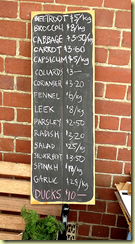 BEETROOT $5/kg
BROCCOLI $8/kg
CABBAGE $3.50
CARROT $3.60
CAPSICUM $5/kg
COLLARDS $3-
CORIANDER $3.20
FENNEL $5/kg
LEEK $8/kg
PARSLEY $2.50
RADISH $3.20
SALAD $25/kg
SILVERBEET $3.50
SPINACH $18/kg
GARLIC $25/kg
DUCKS $10